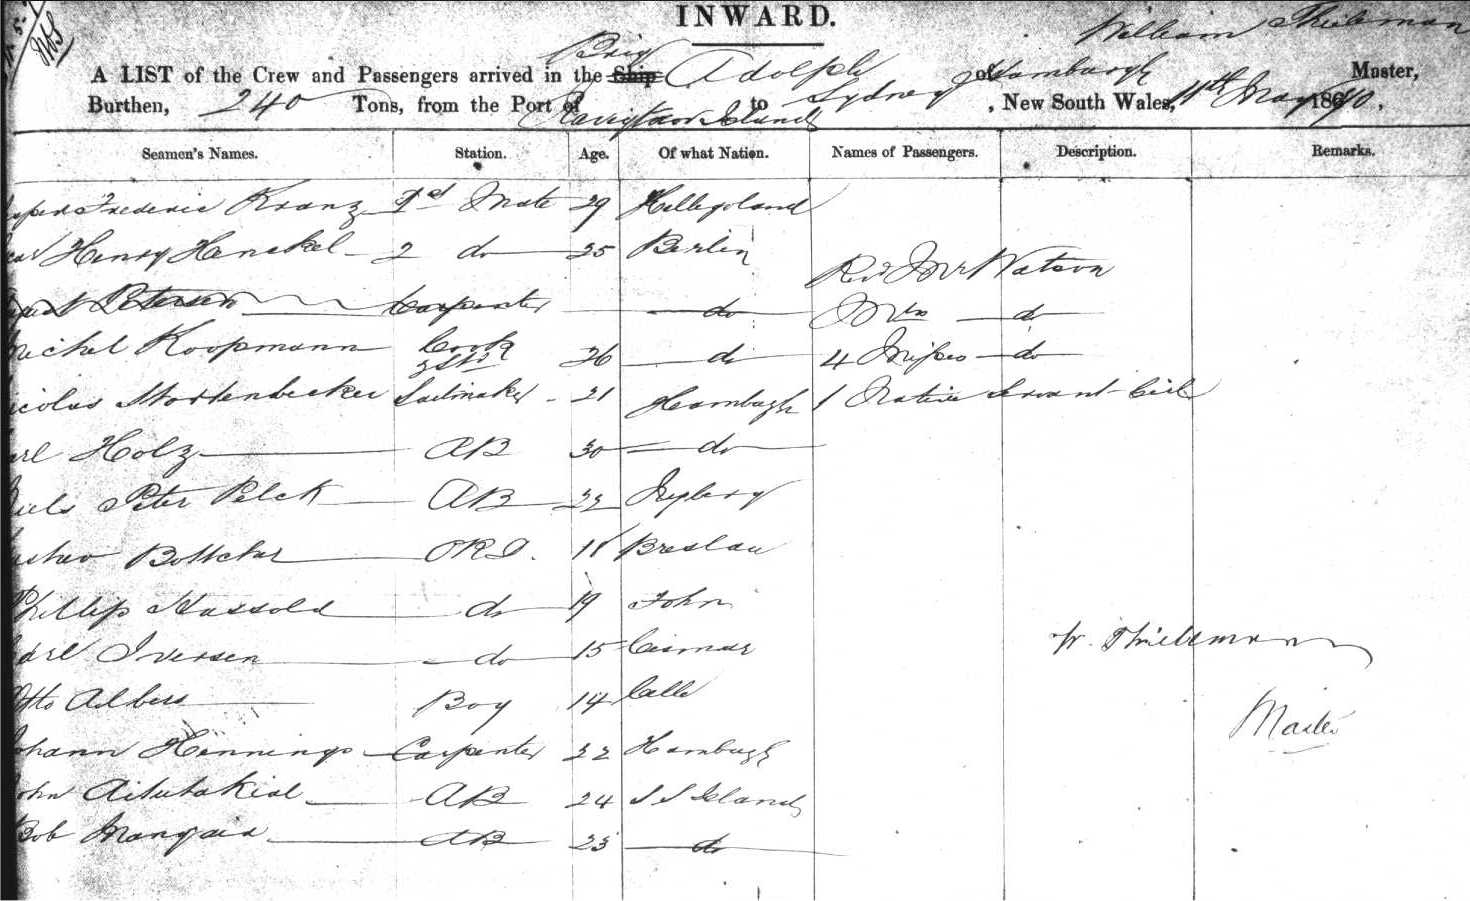 INWARD.
William Thieleman
A LIST of the Crew and Passengers arrived in the Ship Brig Adolph of Hamburgh Master,
Burthen, 240 Tons, from the Port of Island to Sydney, New South Wales, 11th May 1870.
Seamen's Names. Station. Age. Of what Nation. Names of Passengers. Description. Remarks.
Frederic Kranz 1st Mate 29 Helligoland
Henry Henckel 2 do 25 Berlin
Revd Mr Watson
Petersen Carpenter do Mrs do
Michel Koopmann Cook & Std 26 do 4 Misses do
icolas Stortenbecker Sailmaker 21 Hamburgh 1 Native Servant Girl
arl Holz AB 30 do
iels Peter Pelck AB 22
Bottcher ORD. Breslau
Phillip Hassold do 19
Carl Iversen do 15 Cismar
Otto Albers Boy 14 Celle
W. Thielemann
Master
ohann Hennings Carpenter 22 Hamburgh
ohn Aitutakial AB 24 S S Islands
Bob Mangaia AB 23 do